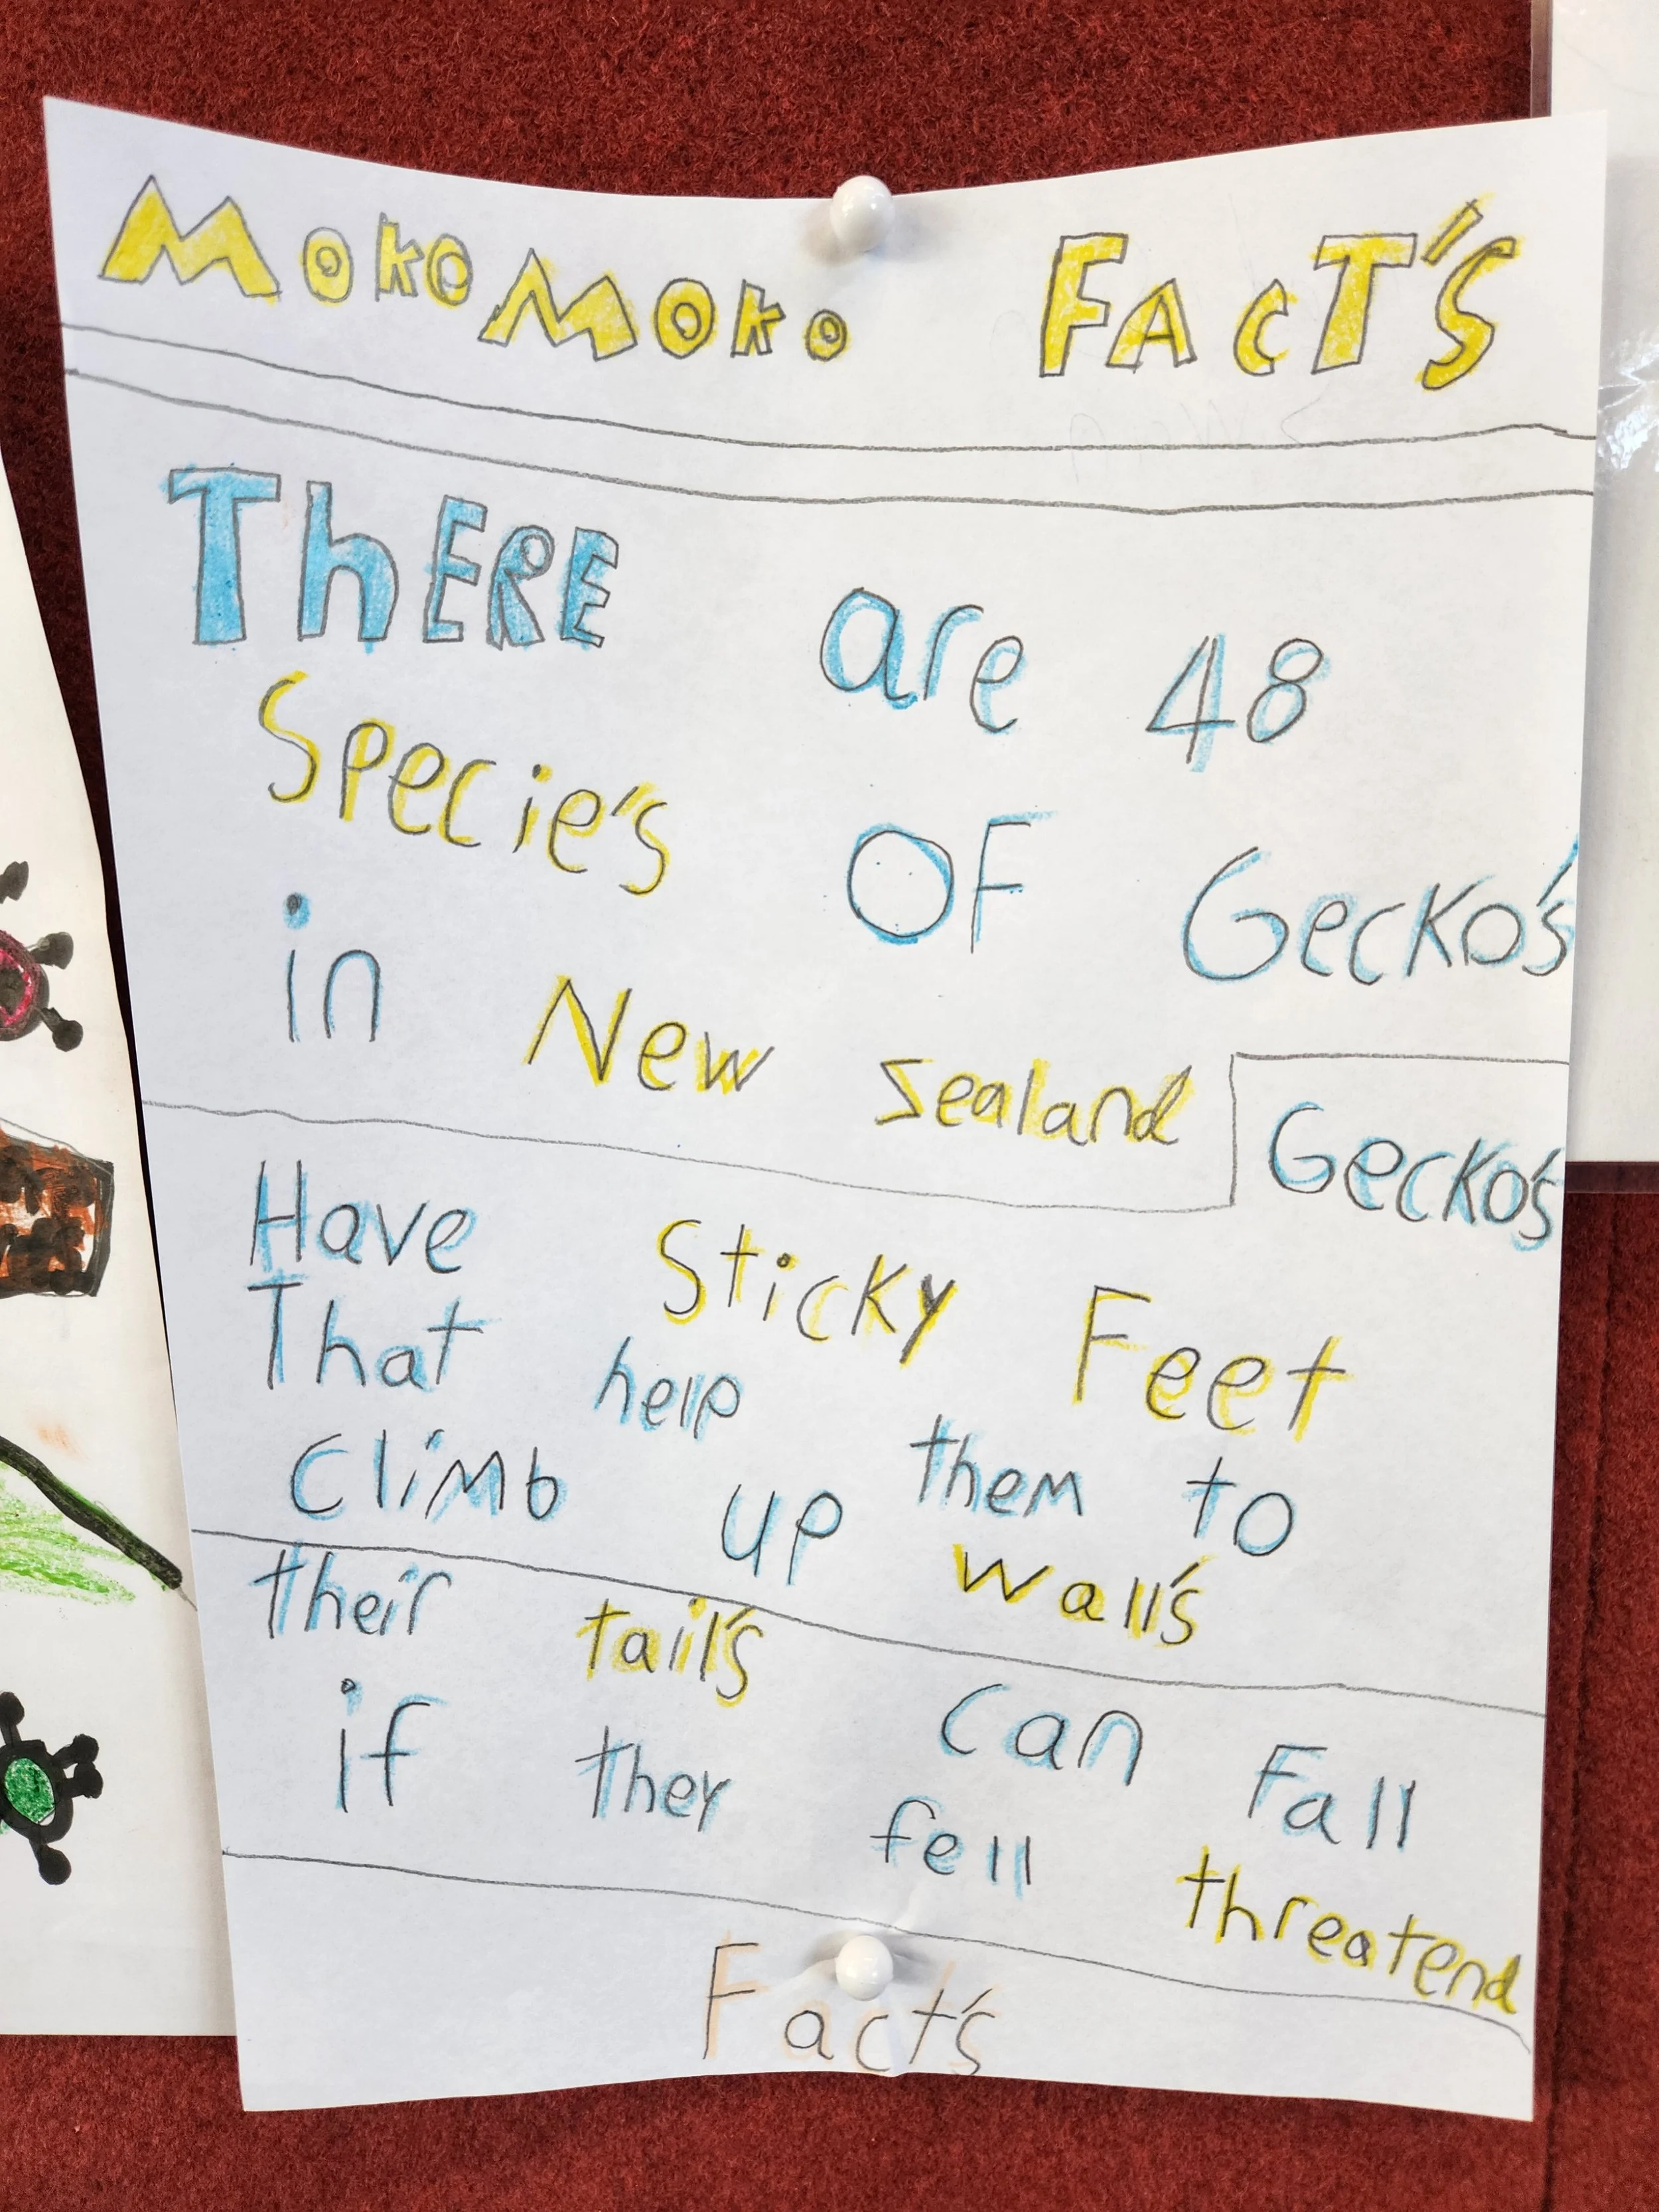 MokoMoko FAcT's
ThERE are 48
Specie's OF Gecko's
in New Sealand
Gecko's
Have Sticky Feet
That help them to
Climb up wall's
their tail's can Fall
if they fell threatend
Fact's